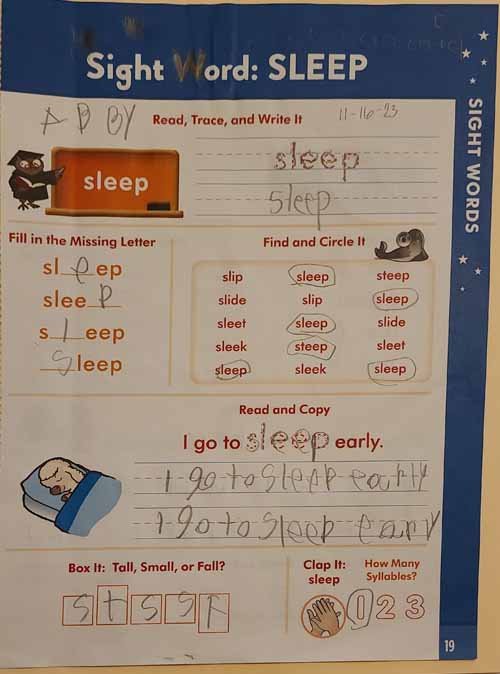 Sight Word: SLEEP
SIGHT WORDS
ABBY
Read, Trace, and Write It
11-16-23
sleep
sleep
sleep
Fill in the Missing Letter
sleep
sleep
sleep
sleep
Find and Circle It
slip sleep steep
slide slip sleep
sleet sleep slide
sleek steep sleet
sleep sleek sleep
Read and Copy
I go to sleep early.
I go to sleep early
I go to sleep eary
Box It: Tall, Small, or Fall?
Clap It:
sleep
How Many
Syllables?
1 2 3
19